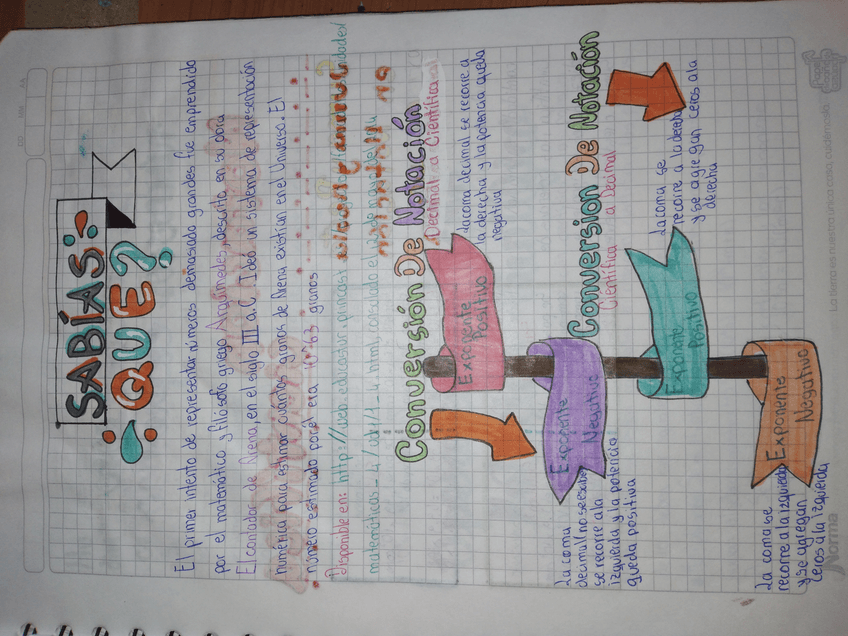 SABÍAS
QUE?
El primer intento de representar números demasiado grandes fue emprendido
por el matemático y filósofo griego Arquímedes, descrito en su obra
El contador de Arena, en el siglo III a.C. Ideó un sistema de representación
numérica para estimar cuántos granos de Arena existían en el Universo. El
número estimado por él era 10 63 granos
Disponible en: http://web.educastur.princast
matemáticas-4/
Conversión De Notación
Decimal a Científica
Exponente
Positivo
La coma decimal se recorre a
la derecha y la potencia queda
negativa
Exponente
Negativo
La coma
decimal no se escribe
se recorre a la
izquierda y la potencia
queda positiva
Conversion De Notación
Científica a Decimal
Exponente
Positivo
La coma se
recorre a la derecha
y se agregan ceros a la
derecha
Exponente
Negativo
La coma se
recorre a la izquierda
y se agregan
ceros a la izquierda
Norma
La tierra es nuestra única casa, cuidémosla.
DD MM AA